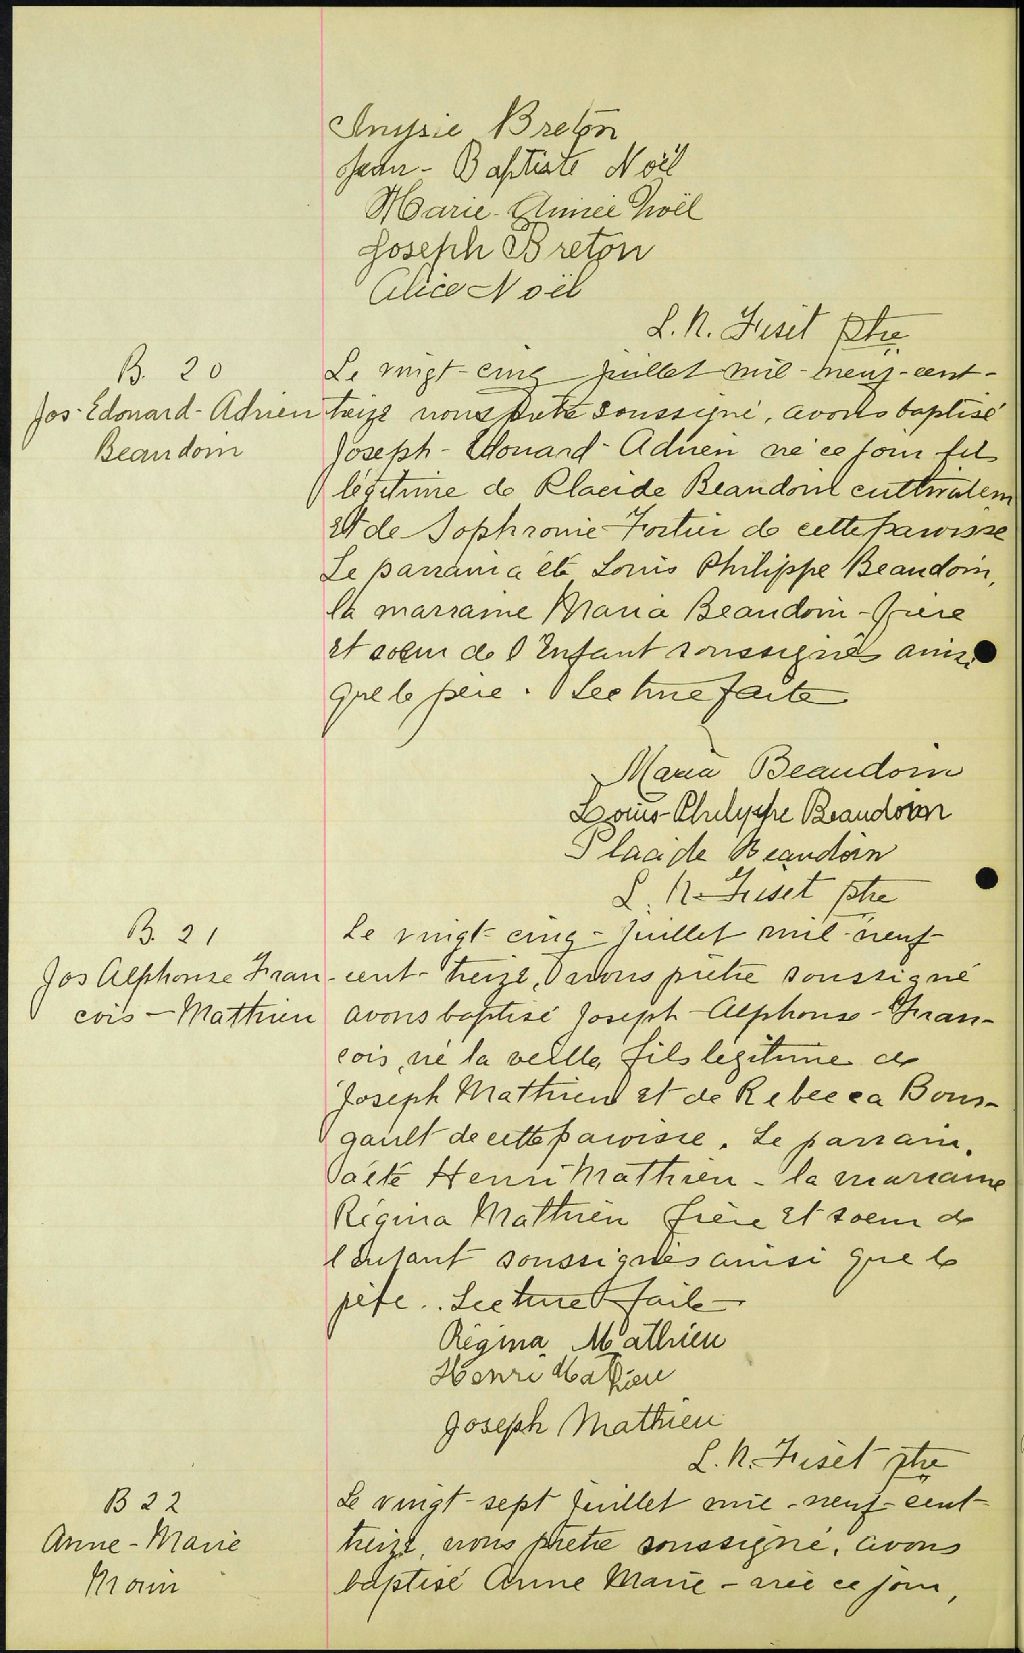 Anysie Breton
Jean-Baptiste Noël
Marie-Aimée Noël
Joseph Breton
Alice Noël
L. N. Fiset ptre
B. 20
Jos-Edouard-Adrien
Beaudoin
Le vingt-cinq juillet mil-neuf-cent-
treize nous prêtre soussigné, avons baptisé
Joseph-Edouard-Adrien né ce jour fils
légitime de Placide Beaudoin cultivateur
et de Sophronie Fortier de cette paroisse
Le parrain a été Louis Philippe Beaudoin,
la marraine Maria Beaudoin-frère
et soeur de l'Enfant soussignés ainsi
que le père. Lecture faite
Maria Beaudoin
Louis-Philippe Beaudoin
Placide Beaudoin
L. N. Fiset ptre
B. 21
Jos Alphonse Fran-
cois-Mathieu
Le vingt-cinq-juillet mil-neuf-
cent-treize, nous prêtre soussigné
avons baptisé Joseph-Alphonse-Fran-
cois, né la veille, fils légitime de
Joseph Mathieu et de Rebecca Bour-
gault de cette paroisse. Le parrain
a été Henri Mathieu - la marraine
Régina Mathieu frère et soeur de
l'enfant soussignés ainsi que le
père.. Lecture faite
Régina Mathieu
Henri Mathieu
Joseph Mathieu
L. N. Fiset ptre
B 22
Anne-Marie
Morin
Le vingt-sept juillet mil-neuf-cent-
treize, nous prêtre soussigné, avons
baptisé Anne Marie - née ce jour,